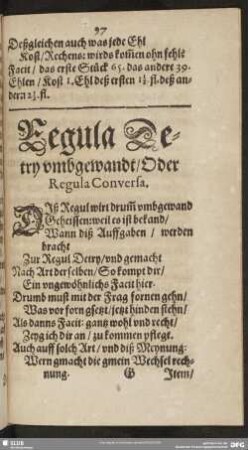 97
Deßgleichen auch was jede Ehl
Kost/Rechens: wirds kom̃en ohn fehle
Facit / das erste Stück 65. das anders 39.
Ehlen/ Kost 1. Ehl deß ersten 1¼. fl. deß an-
dern 2¼. fl.
Regula De-
try vmbgewandt/Oder
Regula Conversa.
DIß Regul wirt drum̃ vmbgewand
Geheissen: weil es ist bekand/
Wann diß Auffgaben / werden
bracht
Zur Regul Detry/vnd gemacht
Nach Art derselben/ So kompt dir/
Ein vngewöhnlichs Facit hier.
Drumb must mit der Frag fornen gehn/
Was vor forn gsetzt/jetzt hinden stehn/
Als danns Facit: gantz wohl vnd recht/
Zeyg ich dir an / zu kommen pflegt.
Auch auff solch Art / vnd diß Meynung:
Wern gmacht die gmein Wechsel rech-
nung. G Item/
SLUB
DFG